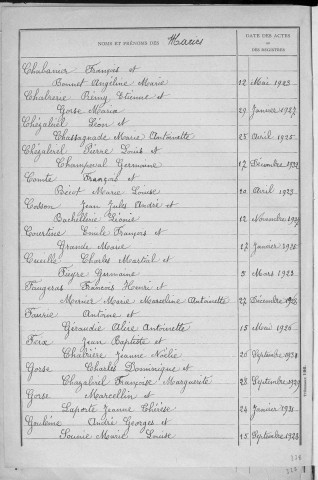 NOMS ET PRÉNOMS DES Mariés
DATE DES ACTES
OU
DES REGISTRES
Chabanier François et
Bonnet Angéline Marie 12 Mai 1923
Chabrerie Rémy Etienne et
Gorse Maria 29 Janvier 1927
Chézalviel Léon et
Chassagnade Marie Antoinette 25 Avril 1925
Chézalviel Pierre Louis et
Champeval Germaine 17 Décembre
Comte François et
Bécot Marie Louise 10 Avril 1923
Cosson Jean Jules André et
Bachellerie Léonie 12 Novembre
Courtine Emile François et
Grande Marie 17 Janvier 1925
Cueille Charles Martial et
Faugre Germaine 5 Mars 1923
Faugeras François Henri et
Mernier Marie Marceline Antoinette 27 Décembre
Faurie Antoine et
Géraudie Alice Antoinette 15 Mai 1926
Foix Jean Baptiste et
Chabrière Jeanne Noélie 26 Septembre 1931
Gorse Charles Dominique et
Chazalviel Françoise Marguerite 28 Septembre 1929
Gorse Marcellin et
Laporte Jeanne Thérèse 24 Janvier 1931
Goulème André Georges et
Sourie Marie Louise 15 Septembre 1928